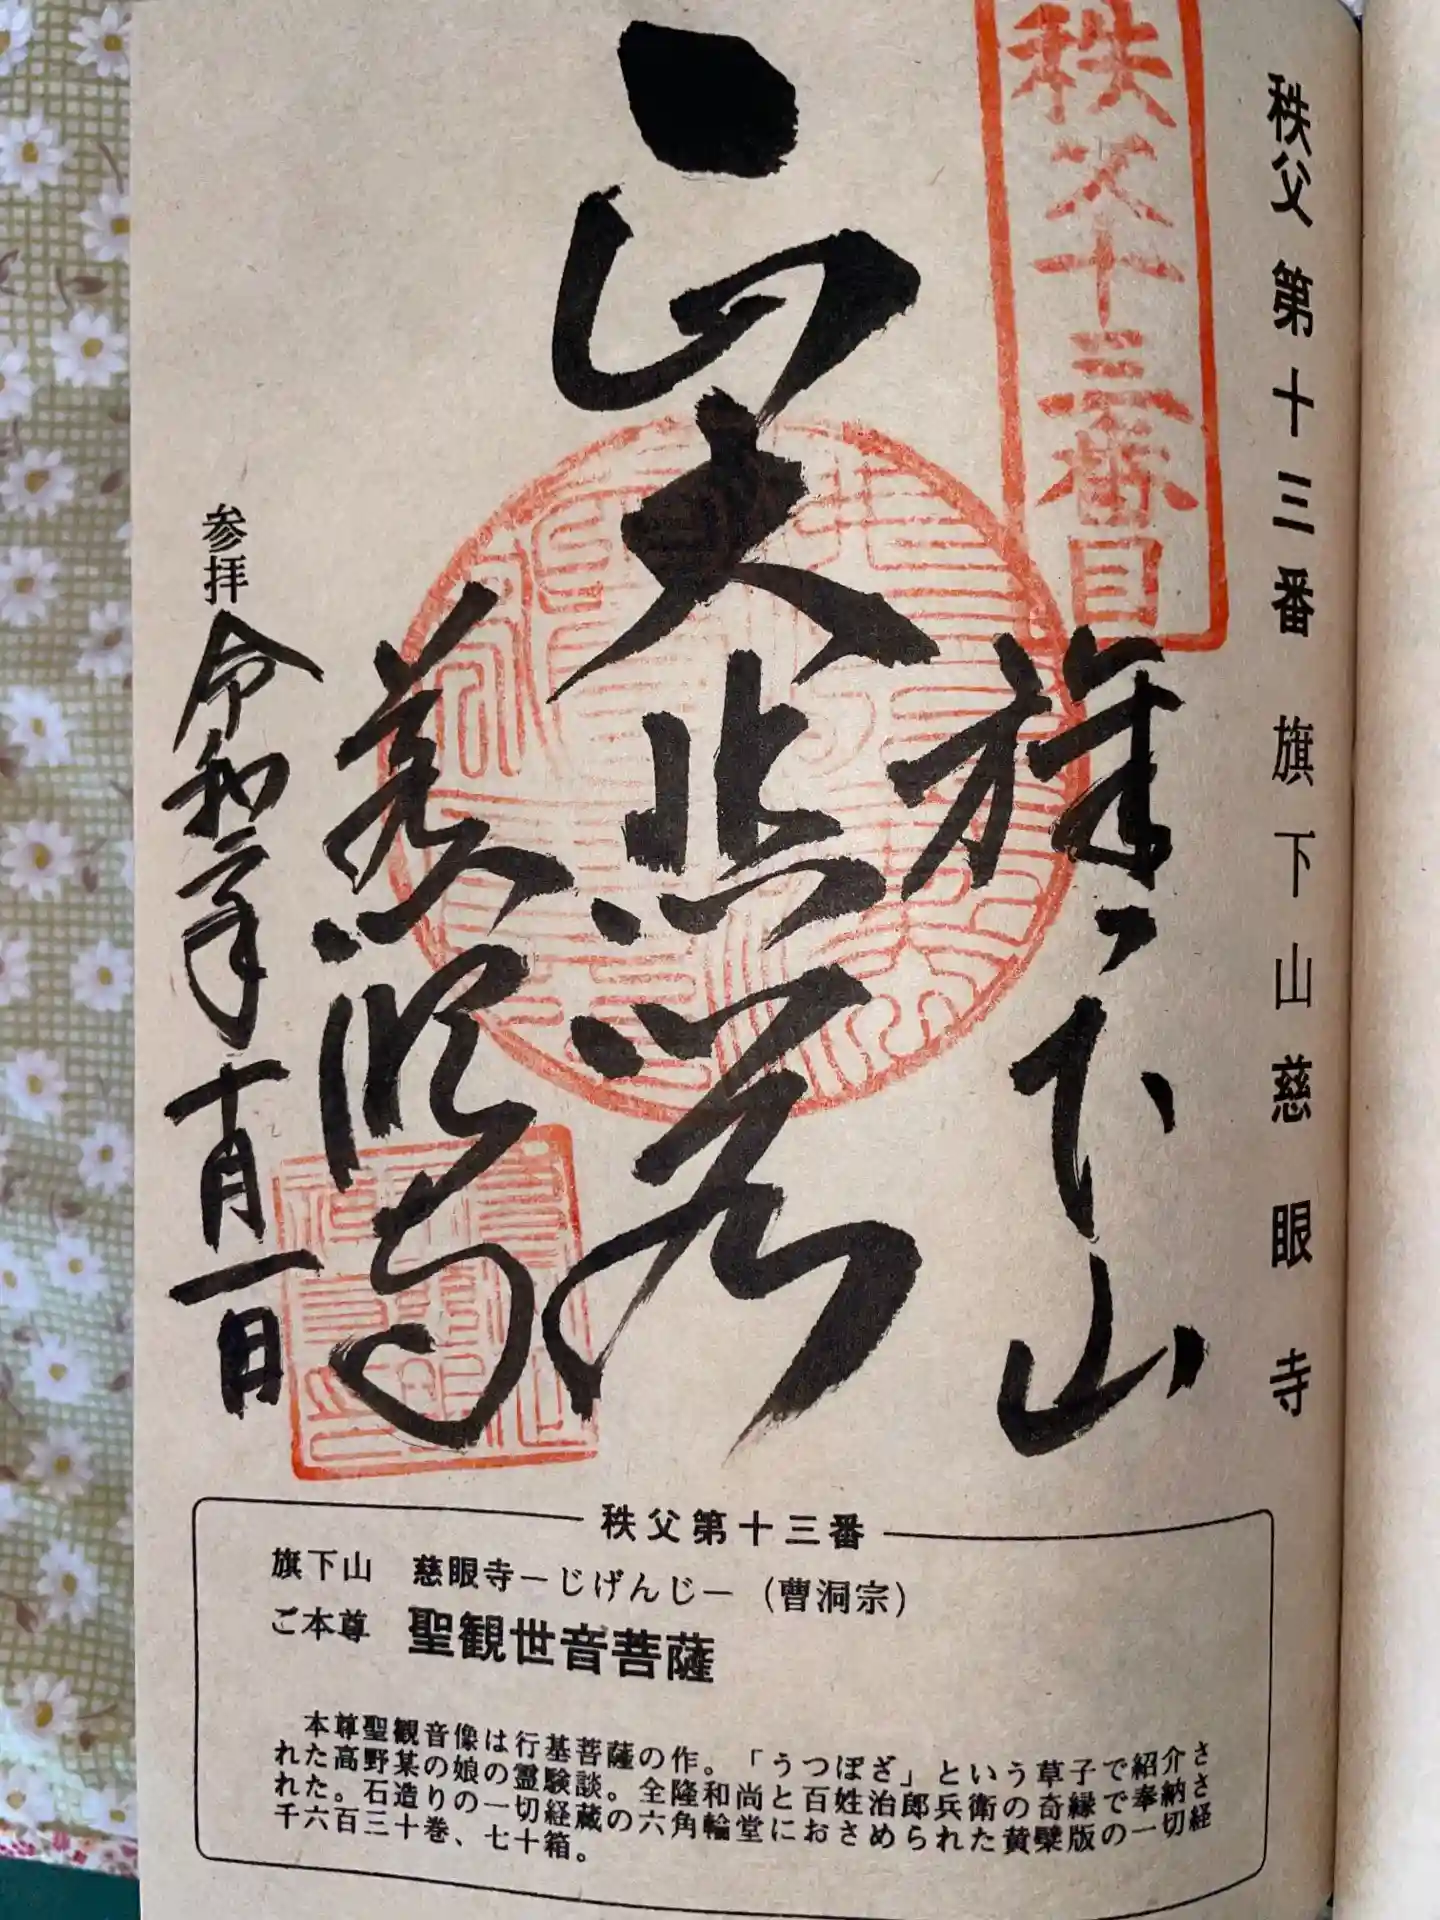 秩父第十三番 旗下山慈眼寺
秩父十三番目
旗下山
大悲
慈眼寺
参拝
令和二年十月一日
秩父第十三番
旗下山 慈眼寺ーじげんじー（曹洞宗）
ご本尊 聖観世音菩薩
本尊聖観音像は行基菩薩の作。「うつぼざ」という草子で紹介さ
れた高野某の娘の霊験談。全隆和尚と百姓治郎兵衛の奇縁で奉納さ
れた。石造りの一切経蔵の六角輪堂におさめられた黄檗版の一切経
千六百三十巻、七十箱。